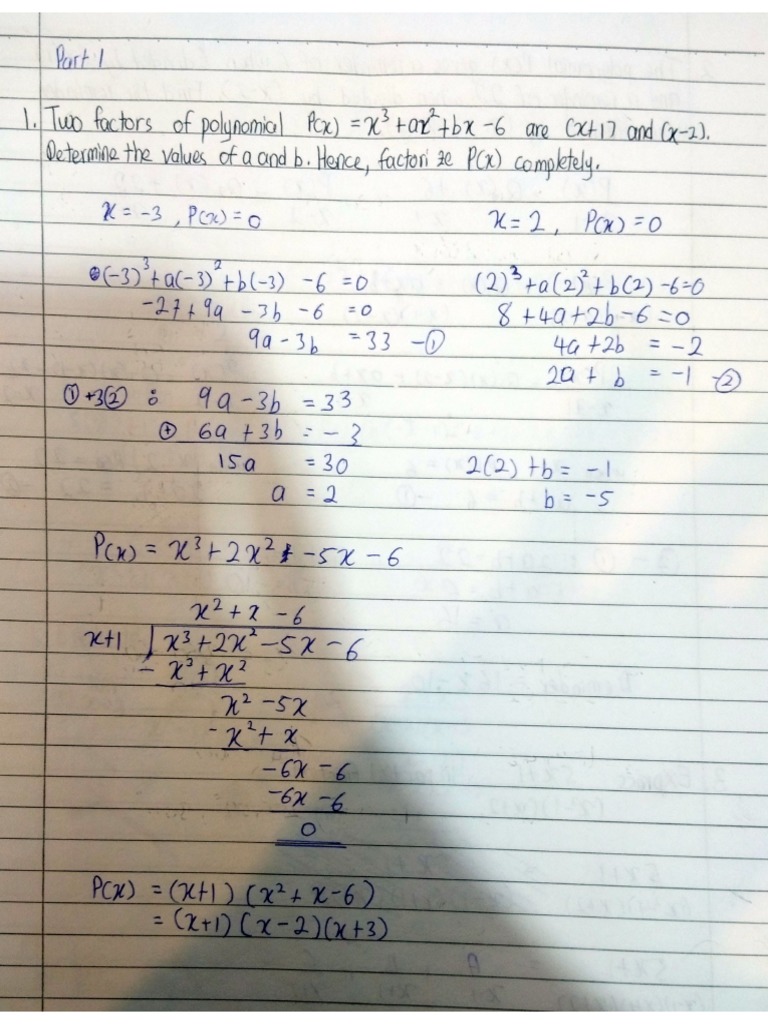 Part 1
1. Two factors of polynomial P(x) = x³ + ax² + bx - 6 are (x+1) and (x-2).
Determine the values of a and b. Hence, factorize P(x) completely.
x = -3, P(x) = 0
(-3)³ + a(-3)² + b(-3) - 6 = 0
-27 + 9a - 3b - 6 = 0
9a - 3b = 33 - ①
x = 2, P(x) = 0
(2)³ + a(2)² + b(2) - 6 = 0
8 + 4a + 2b - 6 = 0
4a + 2b = -2
2a + b = -1 - ②
① + 3② : 9a - 3b = 33
⊕ 6a + 3b = -3
15a = 30
a = 2
2(2) + b = -1
b = -5
P(x) = x³ + 2x² - 5x - 6
x² + x - 6
x+1 | x³ + 2x² - 5x - 6
- x³ + x²
x² - 5x
- x² + x
-6x - 6
-6x - 6
0
P(x) = (x+1) (x² + x - 6)
= (x+1) (x-2)(x+3)